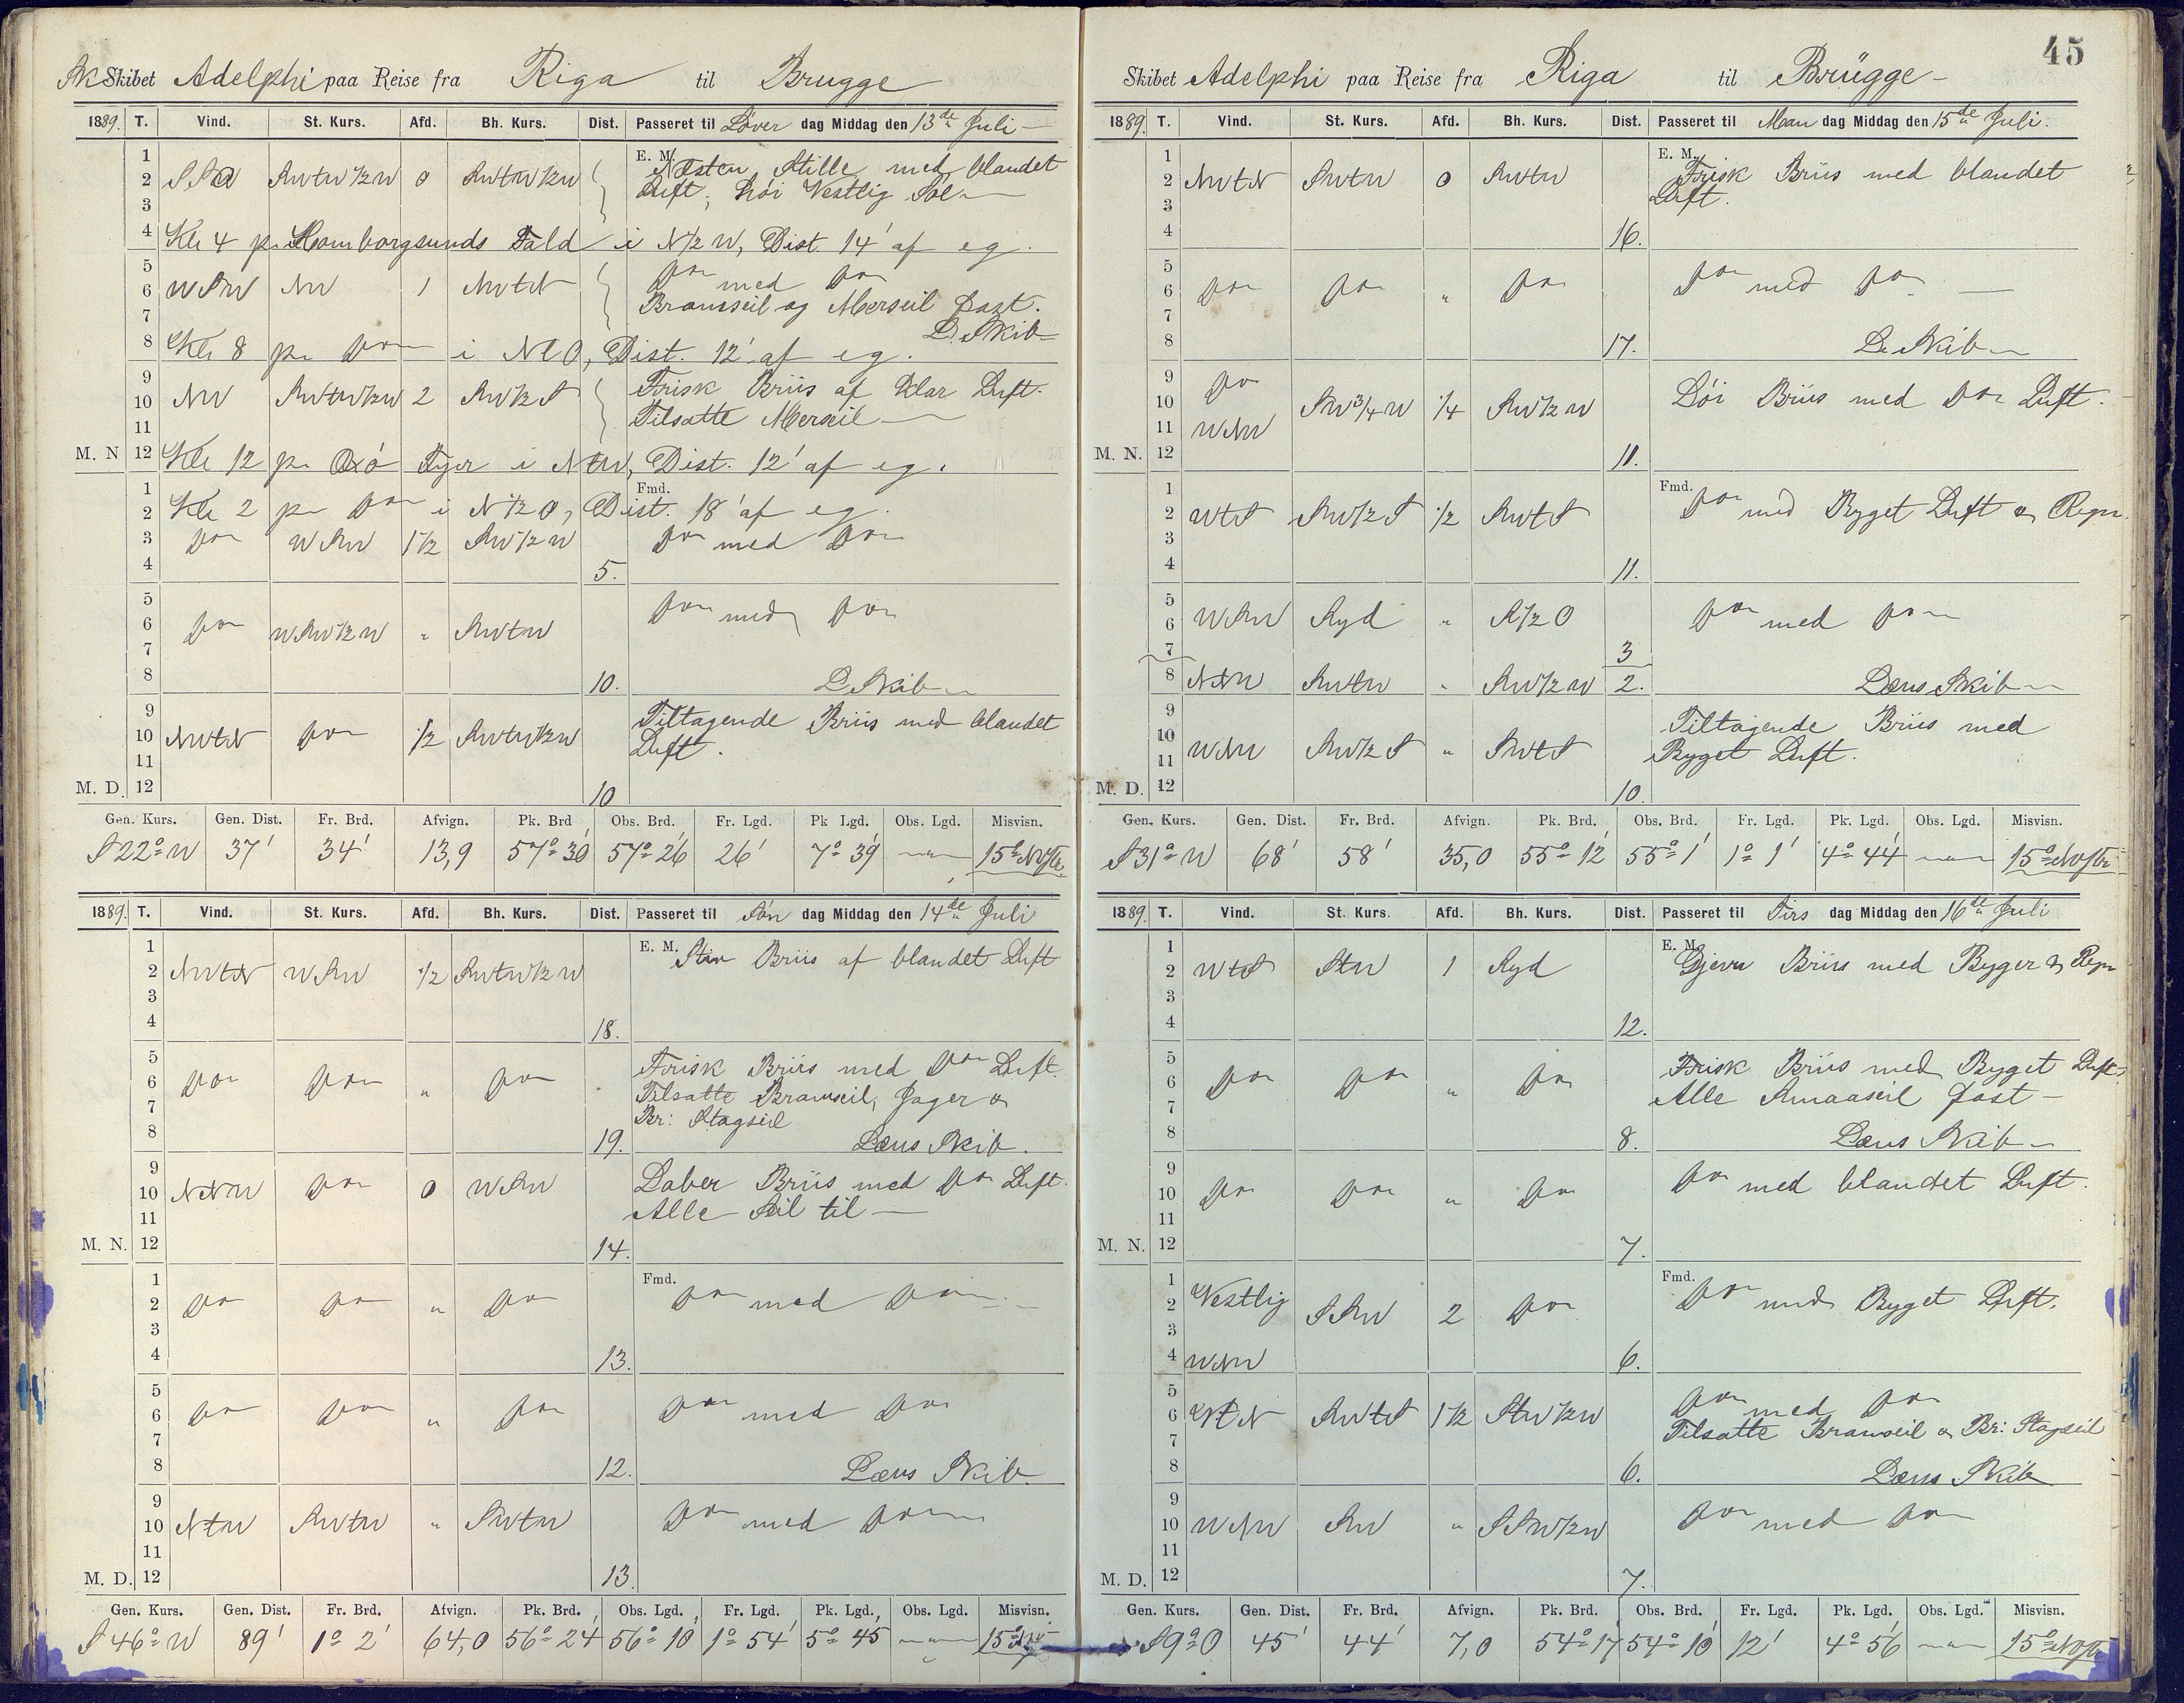 Sk Skibet Adelphi paa Reise fra Riga til Brugge
1889. T. Vind. St. Kurs. Afd. Bh. Kurs. Dist. Passeret til Löver dag Middag den 13de Juli
1 E. M. Næsten Stille med blandet
2 SSO SWtW½W 0 SWtW½W Luft, höi Vestlig Söe
3
4 Kl 4 p. Homborgsunds Fald i N½W, Dist. 14' af eg.
5 Do med Do
6 WSW NW 1 NWtN Bramseil og Merseil fast.
7 L. Skib
8 Kl 8 p. Do i NtO, Dist. 12' af eg.
9 Frisk Briis af klar Luft.
10 NW SWtW½W 2 SW½S Tilsatte Merseil
11
M. N 12 Kl 12 p. Oxö Fyr i NtW, Dist. 12' af eg.
1 Fmd.
2 Kl 2 p. Do i N½O, Dist. 18' af eg.
3 Do WSW 1½ SW½W Do med Do
4 5.
5
6 Do WSW½W " SWtW Do med Do
7
8 10. L. Skib
9 Tiltagende Briis med blandet
10 NWtN Do ½ SWtW½W Luft.
11
M. D. 12 10
Gen. Kurs. Gen. Dist. Fr. Brd. Afvign. Pk. Brd Obs. Brd. Fr. Lgd. Pk Lgd. Obs. Lgd. Misvisn.
S 22° W 37' 34' 13,9 57° 30' 57° 26' 26' 7° 39' 15° NV
1889. T. Vind. St. Kurs. Afd. Bh. Kurs. Dist. Passeret til Sön dag Middag den 14de Juli
1 E. M. Stiv Briis af blandet Luft
2 NWtN WSW ½ SWtW½W
3
4 18.
5 Frisk Briis med Do Luft.
6 Do Do " Do Tilsatte Bramseil, Jager &
7 Br: Stagseil
8 19. Læns Skib.
9 Laber Briis med Do Luft.
10 NNW Do 0 WSW Alle Seil til
11
M. N. 12 14.
1 Fmd.
2 Do Do " Do Do med Do
3
4 13.
5
6 Do Do " Do Do med Do
7
8 12. Læns Skib
9
10 NtW SWtW " SWtW Do med Do
11
M. D. 12 13.
Gen. Kurs. Gen. Dist. Fr. Brd. Afvign. Pk. Brd. Obs. Lgd. Fr. Lgd. Pk. Lgd. Obs. Lgd. Misvisn.
S 46° W 89' 1° 2' 64,0 56° 24' 56° 10' 1° 54' 5° 45' 15° NV
45
Skibet Adelphi paa Reise fra Riga til Brügge
1889. T. Vind. St. Kurs. Afd. Bh. Kurs. Dist. Passeret til Man dag Middag den 15de Juli.
1 E. M. Frisk Briis med blandet
2 NWtN SWtW 0 SWtW Luft.
3
4 16.
5
6 Do Do " Do Do med Do
7
8 17. L. Skib
9 Do
10 SW¾W ¼ SW½W Löi Briis med Do Luft.
11 WNW
M. N. 12 11.
1 Fmd.
2 WtS SW½S ½ SWtS Do med Byget Luft & Regn.
3
4 11.
5
6 WSW Syd " S½O Do med Do
7 3
8 NNW SWtW " SW½W 2. Læns Skib
9 Tiltagende Briis med
10 WNW SW½S " SWtS Byget Luft.
11
M. D. 12 10.
Gen. Kurs. Gen. Dist. Fr. Brd. Afvign. Pk. Brd. Obs. Brd. Fr. Lgd. Pk. Lgd. Obs. Lgd. Misvisn.
S 31° W 68' 58' 35,0 55° 12' 55° 1' 1° 1' 4° 44' 15°
1889. T. Vind. St. Kurs. Afd. Bh. Kurs. Dist. Passeret til Tirs dag Middag den 16de Juli
1 E. M. Gjevn Briis med Byger & Regn
2 WtS StW 1 Syd
3
4 12.
5 Frisk Briis med Byget Luft.
6 Do Do " Do Alle Smaaseil fast
7
8 8. Læns Skib
9
10 Do Do " Do Do med blandet Luft.
11
M. N. 12 7.
1 Fmd.
2 Vestlig SSW 2 Do Do med Byget Luft.
3
4 WNW 6.
5 Do med Do
6 WtN SWtS 1½ StW½W Tilsatte Bramseil & Br: Stagseil
7
8 6. Læns Skib
9
10 WNW SW " SSW½W Do med Do
11
M. D. 12 7.
Gen. Kurs. Gen. Dist. Fr. Brd. Afvign. Pk. Brd. Obs. Brd. Fr. Lgd. Pk. Lgd. Obs. Lgd. Misvisn.
S 9° O 45' 44' 7,0 54° 17' 54° 10' 12' 4° 56' 15°